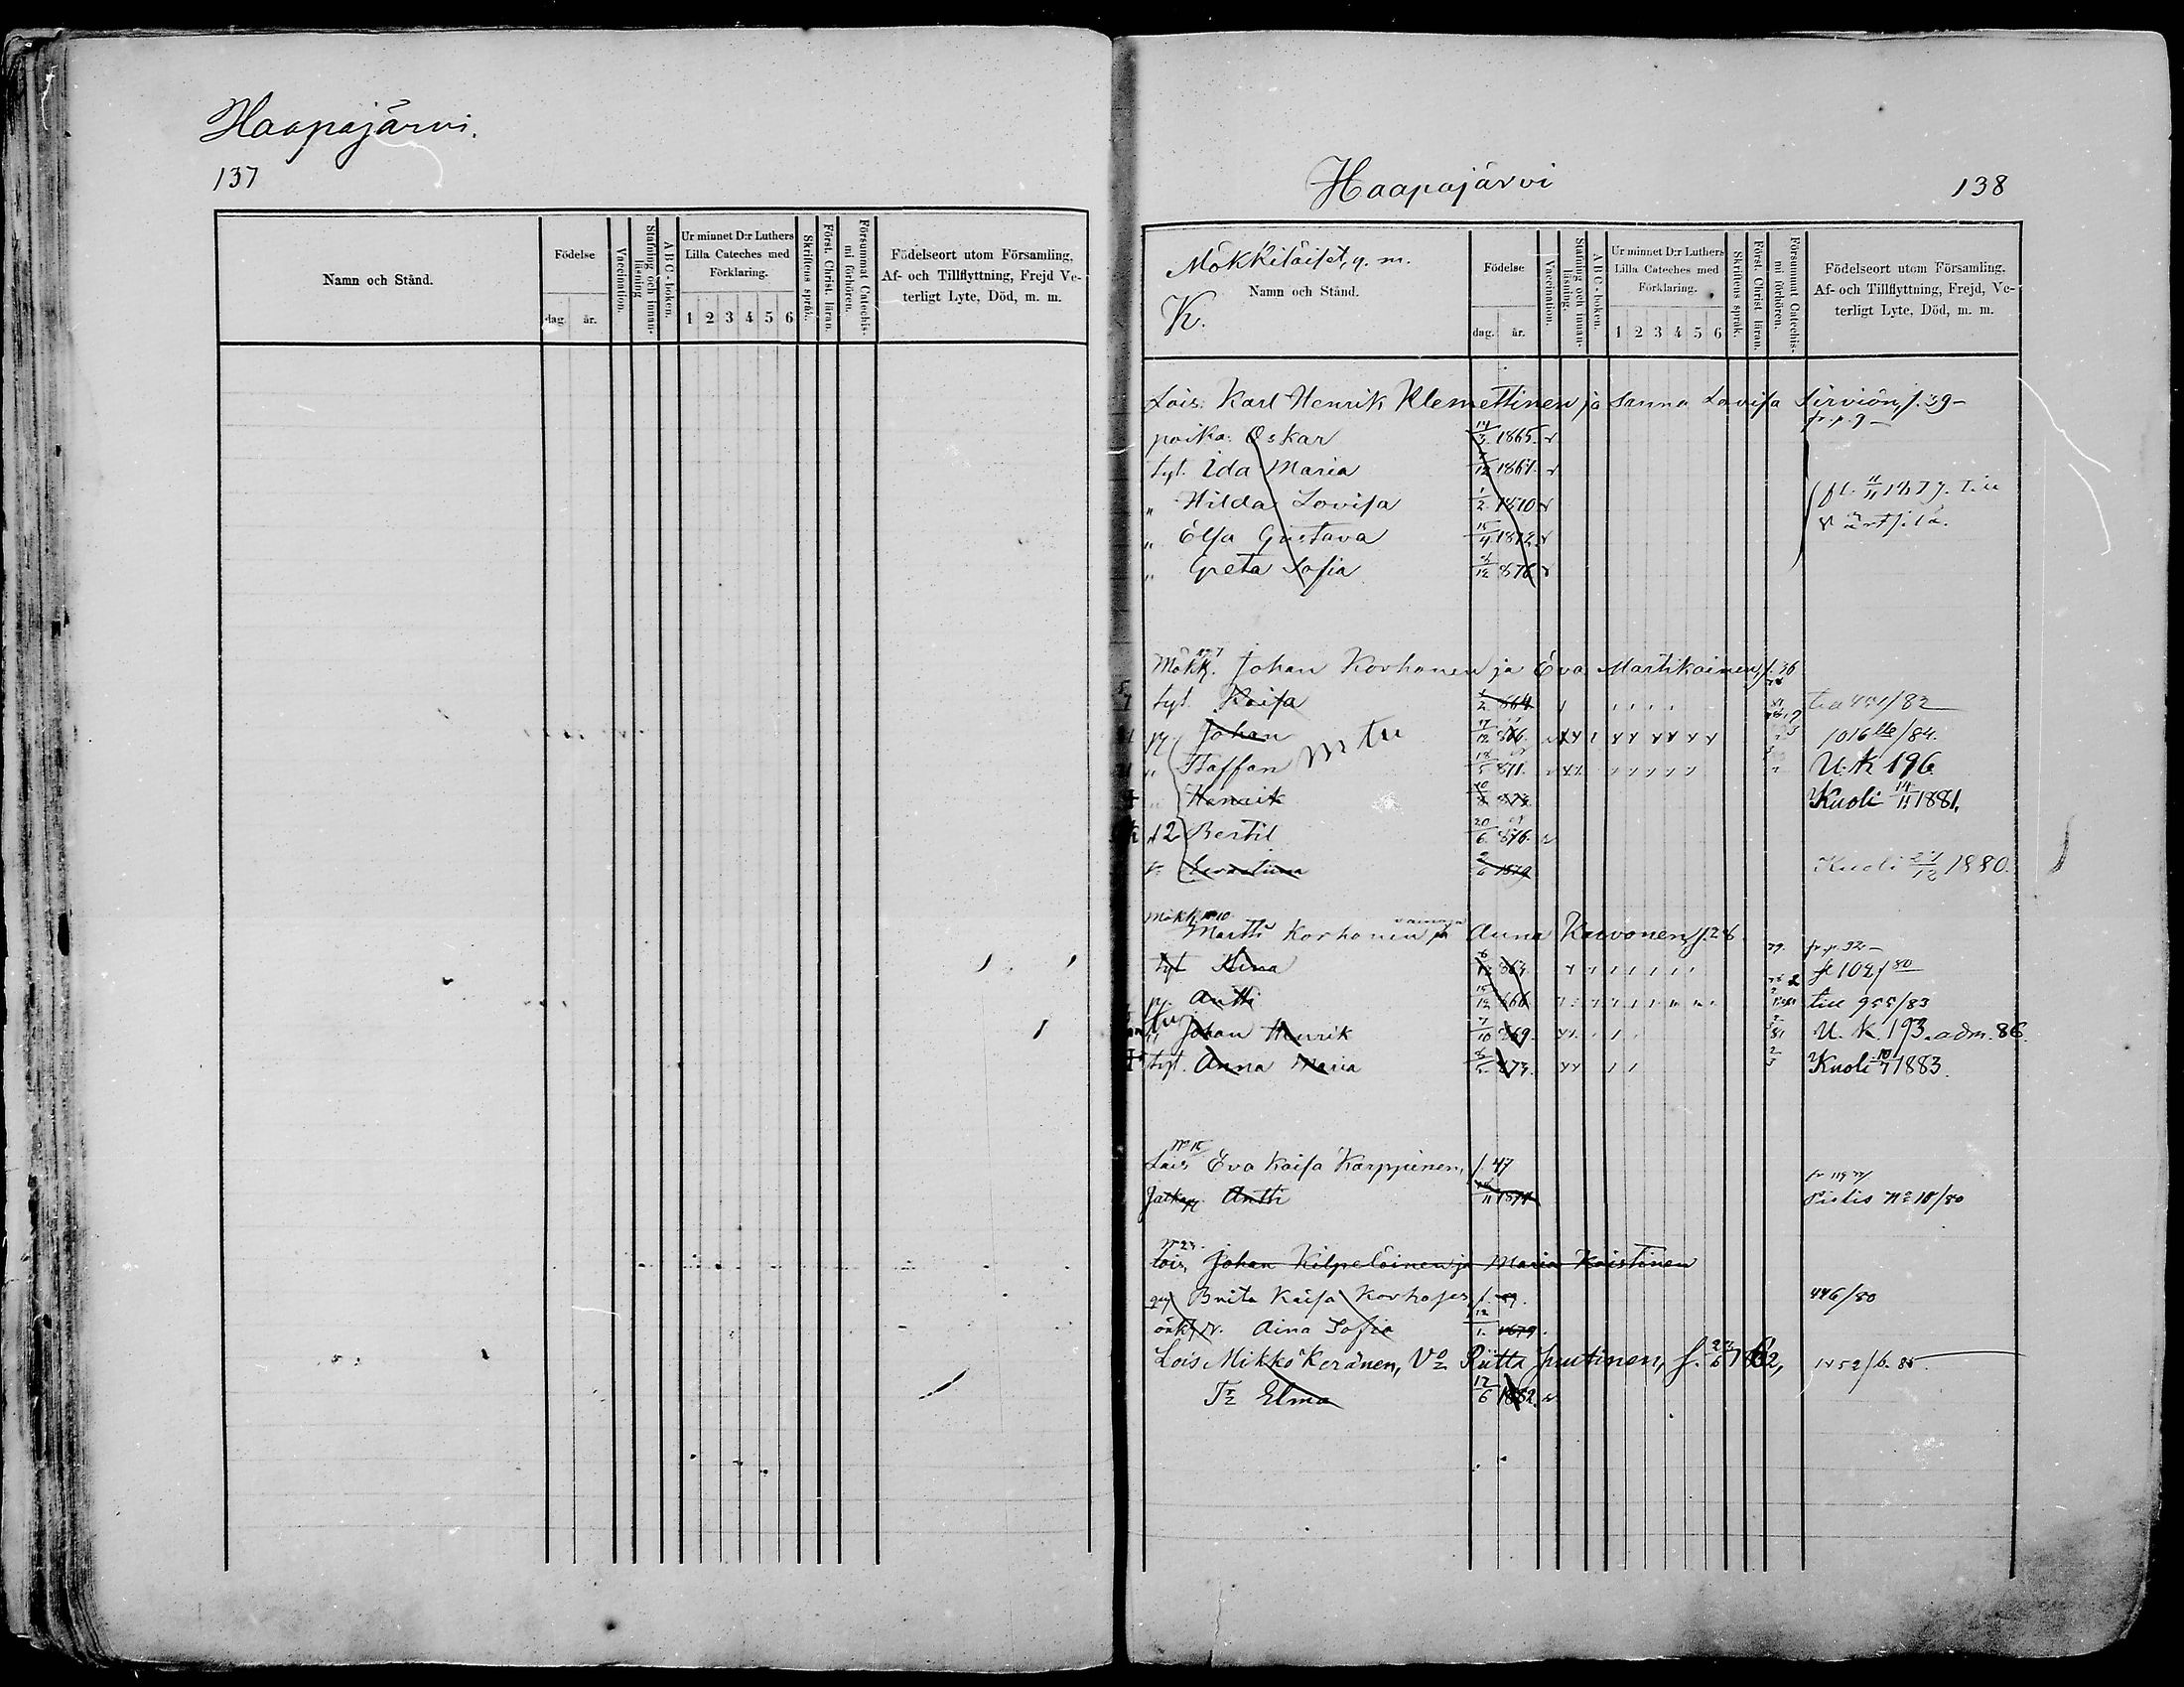 Haapajärvi.
137
Namn och Stånd.
Födelse
dag. år.
Vaccination.
Stafning och innanläsning
ABC-boken.
Ur minnet D:r Luthers Lilla Cateches med Förklaring.
1 2 3 4 5 6
Skriftens språk.
Först. Christ. läran.
Försummat Catechismi förhören.
Födelseort utom Församling, Af- och Tillflyttning, Frejd Veterligt Lyte, Död, m. m.
Haapajärvi
138
Mökkiläiset, y. m.
Namn och Stånd.
K.
Födelse
dag. år.
Vaccination.
Stafning och innanläsning.
ABC-boken.
Ur minnet D:r Luthers Lilla Cateches med Förklaring.
1 2 3 4 5 6
Skriftens språk.
Först. Christ läran.
Försummat Catechismi förhören.
Födelseort utom Församling, Af- och Tillflyttning, Frejd, Veterligt Lyte, Död, m. m.
Lois: Karl Henrik Klemettinen ja Sanna Lovisa Sirviön, f. 39
poika: Oskar 14/3 1865.
tyt. Ida Maria /12 1867.
" Hilda Lovisa 1/2 1870 fl. 11/11 1877. till
" Elsa Gustava 15/4 1872 Värtsilä.
" Greta Sofia /12 876
Mökk. Johan Korhonen ja Eva Martikainen, f. 36
tyt. Kaisa /2 864 till 451/82
pj. Johan 17/12 866. 1016 /84.
" Staffan 18/5 871. U. K 196
" Henrik Kuoli 14/11 1881.
Bertil 20/6 876.
6 1879 Kuoli 27/12 1880.
Mökk. No 10
Martti Korhonen ja Anna Karvonen, f. 28
fr. p. 92
tyt Stina 863. 102/80
pj. Antti 15/12 866 till 955/83
" Johan Henrik 7/10 869. U. K. 193. adm. 86.
tyt. Anna Maria 873. Kuoli 10/7 1883.
No 15
Lois Eva Kaisa Karppinen, f. 47
Antti /11 1874 No 18/80
No 23.
Lois, Johan Kilpeläinen ja Maria Koistinen
Brita Kaisa Korhones, f. 446/80
Aina Sofia 12/1. 1879.
Lois Mikko Keränen, Vo Riitta Juutinen, f. 6 1852/b. 85.
Tr Elma 12/6 1882.